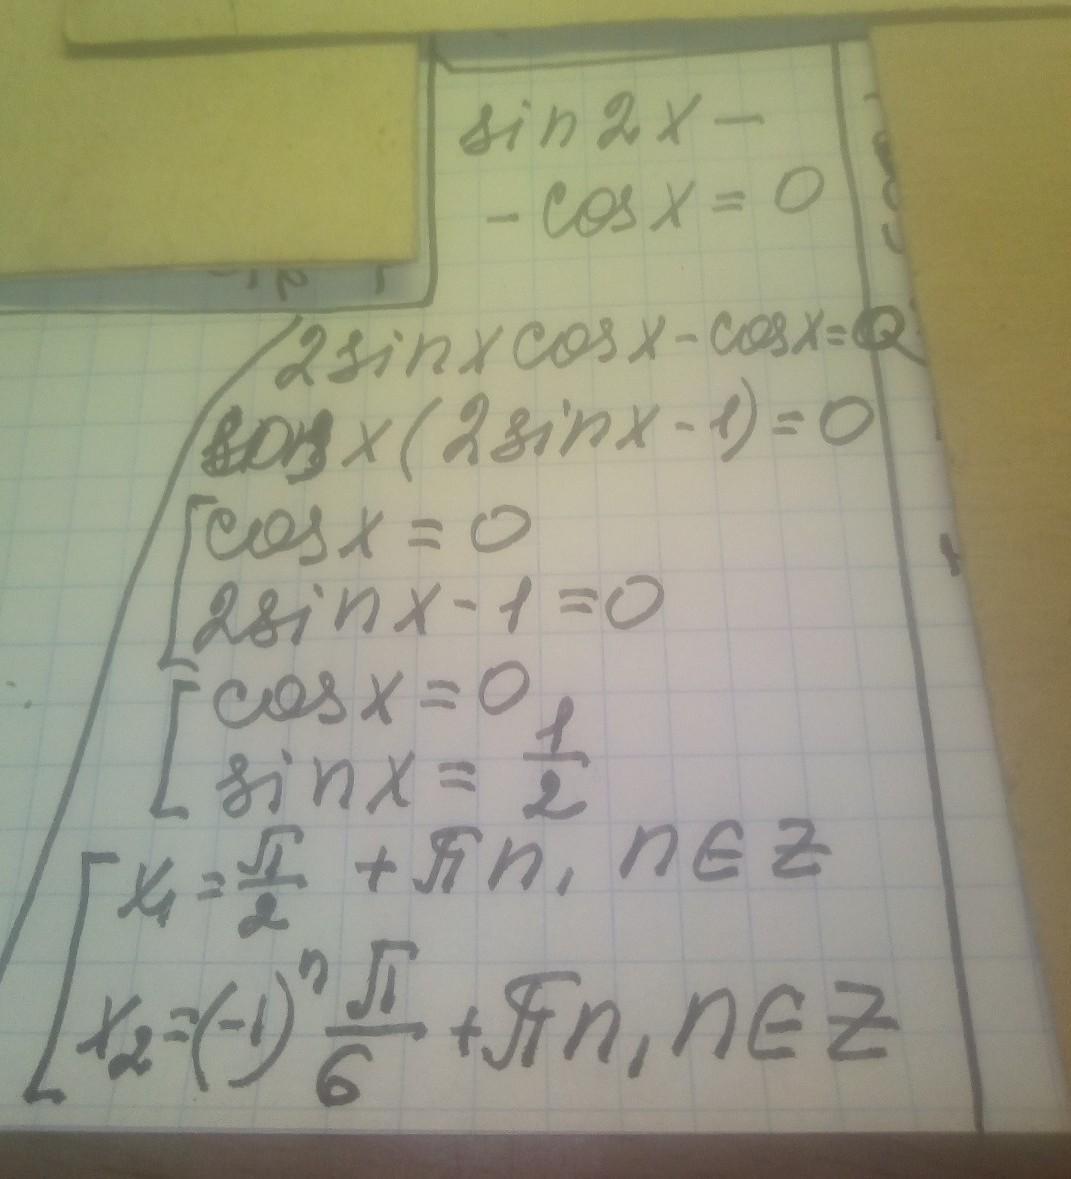 sin2x-
-cosx=0
2sinxcosx-cosx=0
cosx(2sinx-1)=0
cosx=0
2sinx-1=0
cosx=0
sinx=1/2
x₁=π/2+πn, n∈Z
x₂=(-1)ⁿπ/6+πn, n∈Z